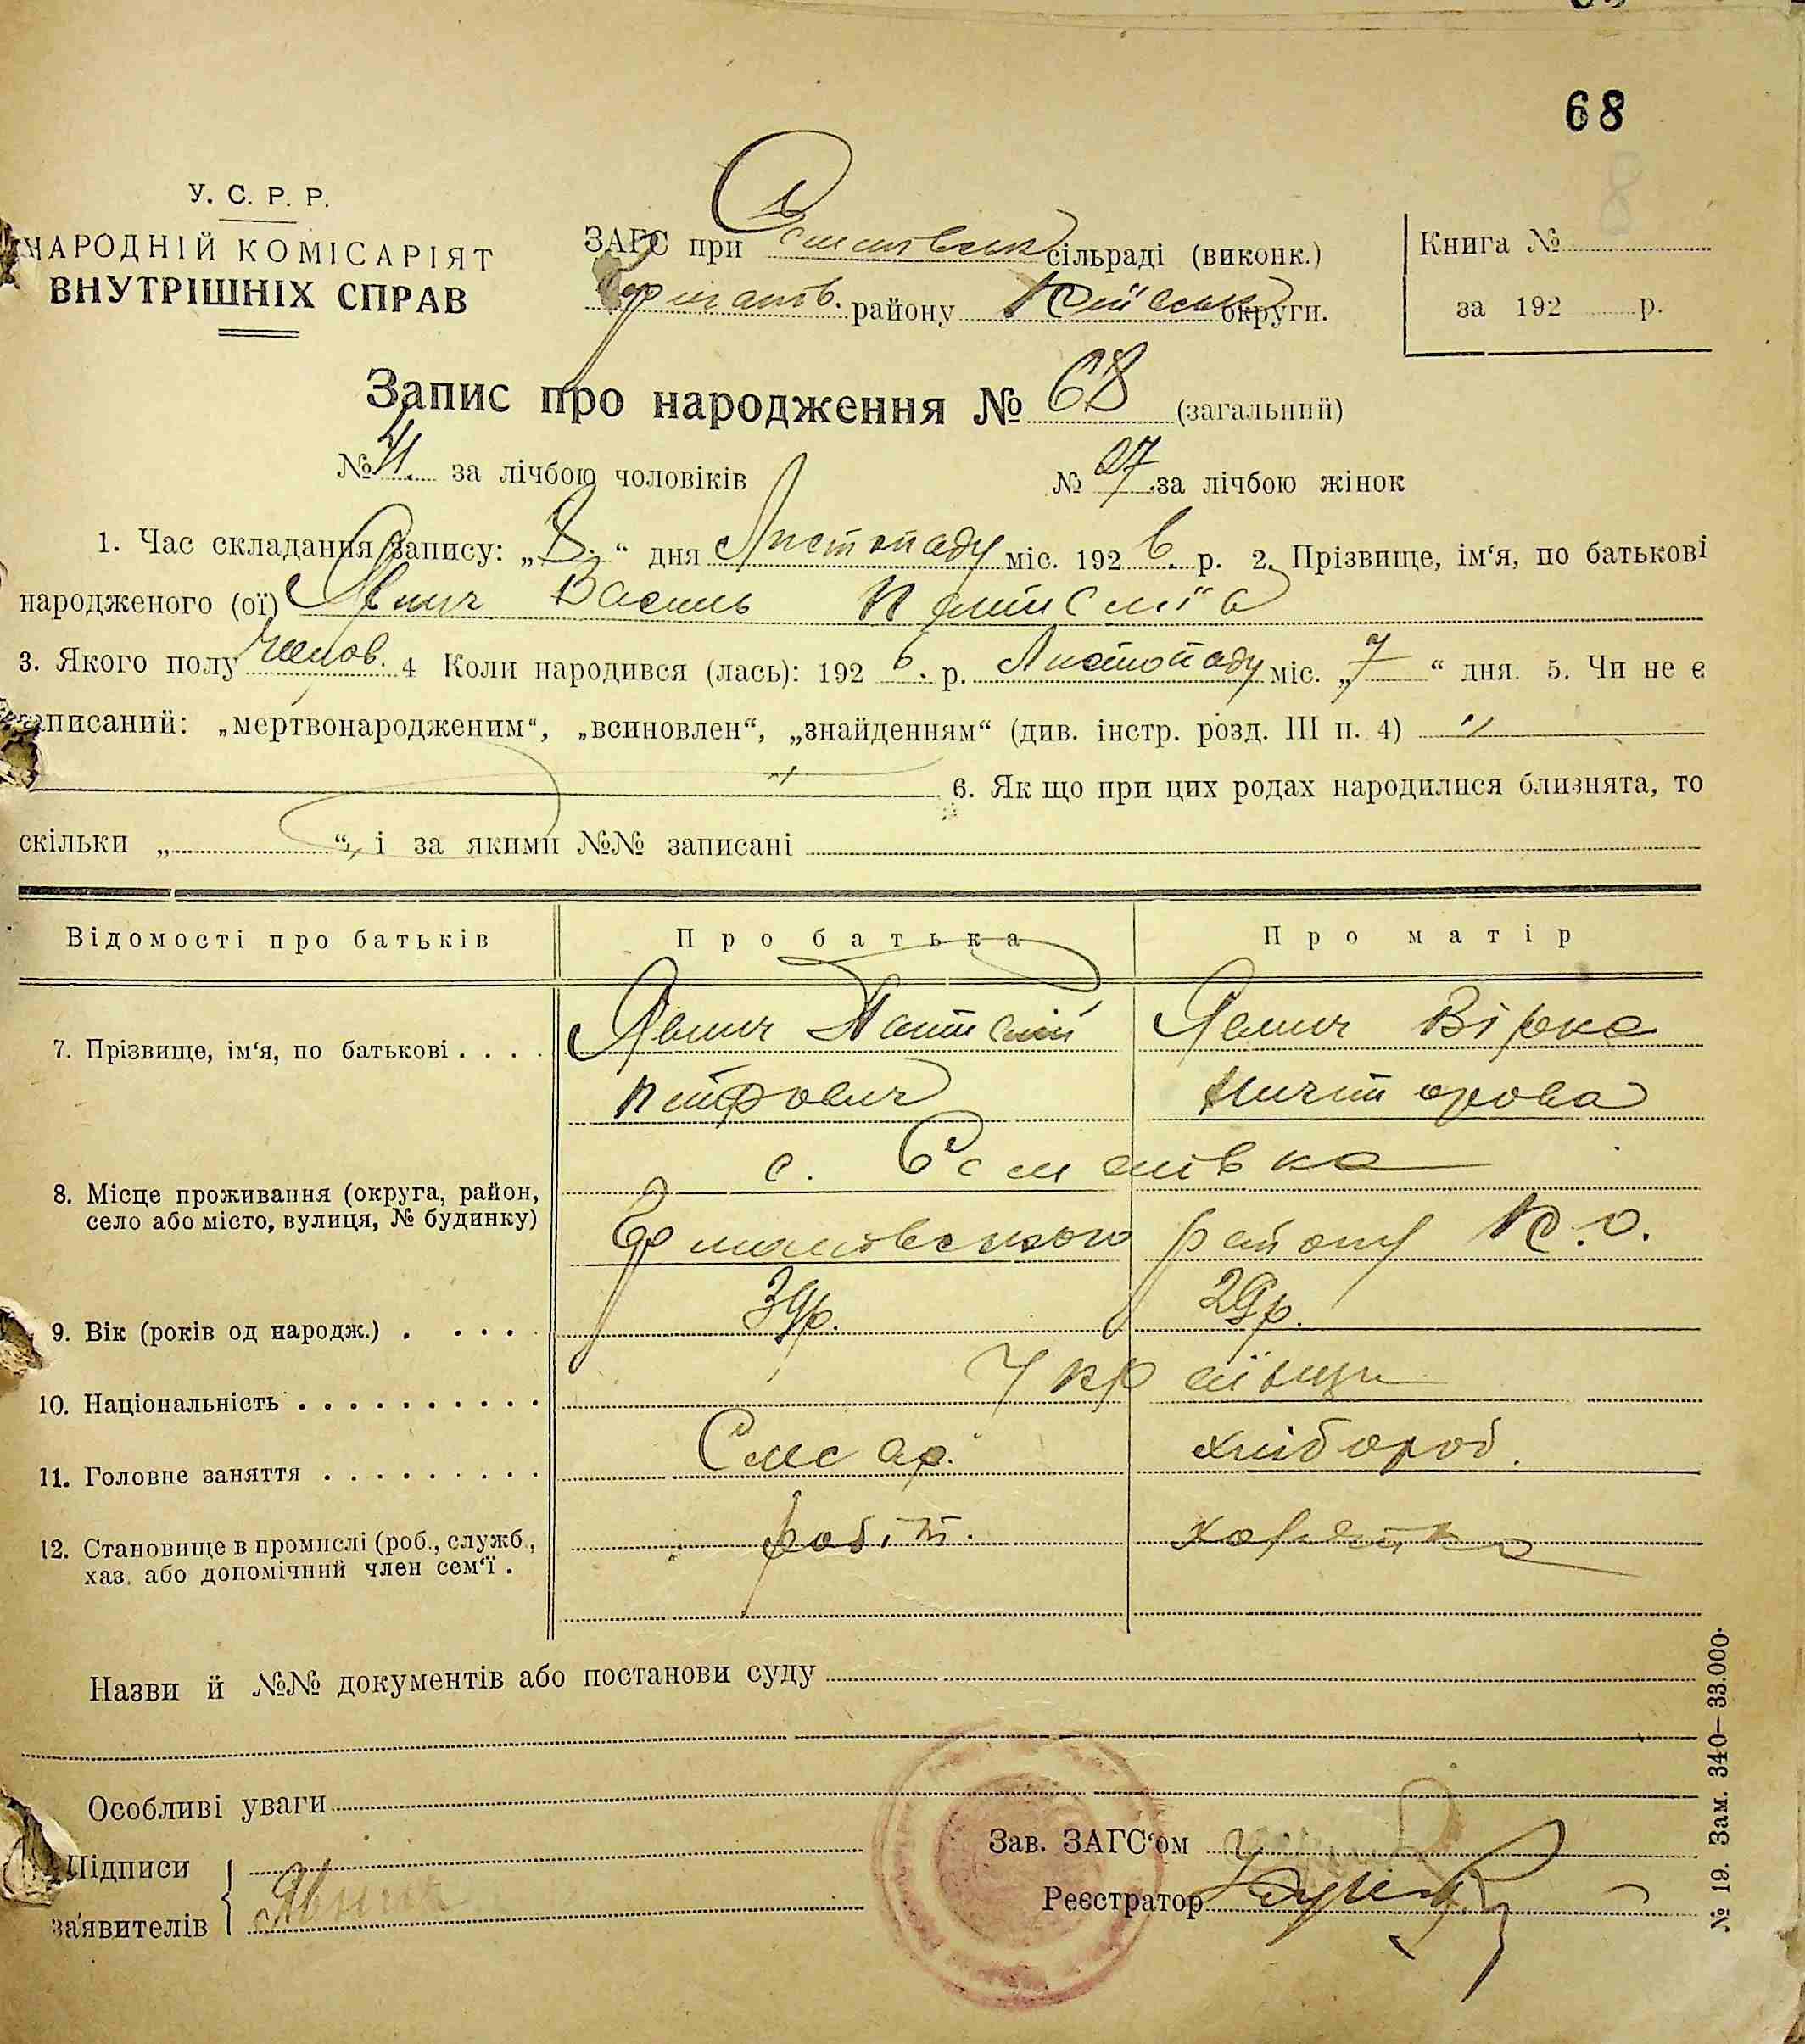 68
У. С. Р. Р.
НАРОДНІЙ КОМІСАРІЯТ
ВНУТРІШНІХ СПРАВ
ЗАГС при сільраді (виконк.)
району округи.
Книга №
за 192 р.
Запис про народження № 68 (загальний)
№ 41 за лічбою чоловіків № 27 за лічбою жінок
1. Час складання запису: „8“ дня Листопаду міс. 1926 р. 2. Прізвище, ім‘я, по батькові
народженого (ої) Явнич Василь
3. Якого полу чолов. 4 Коли народився (лась): 1926. р. Листопаду міс. „7“ дня. 5. Чи не є
записаний: „мертвонародженим“, „всиновлен“, „знайденням“ (див. інстр. розд. III п. 4) „
„ 6. Як що при цих родах народилися близнята, то
скільки „ “, і за якими №№ записані
Відомості про батьків Про батька Про матір
7. Прізвище, ім‘я, по батькові . . . . Явнич Явнич Вірка
Петрович
8. Місце проживання (округа, район,
село або місто, вулиця, № будинку)
с.
району К.О.
9. Вік (років од народж.) . . . . . 39р. 29р.
10. Національність . . . . . . . . . . Українці
11. Головне заняття . . . . . . . . . Слюсар. хлібороб.
12. Становище в промислі (роб., служб.,
хаз. або допомічний член сем‘ї .
робіт.
Назви й №№ документів або постанови суду
Особливі уваги
Підписи
заявителів
Явнич
Зав. ЗАГС‘ом
Реєстратор
№ 19. Зам. 340—33.000.